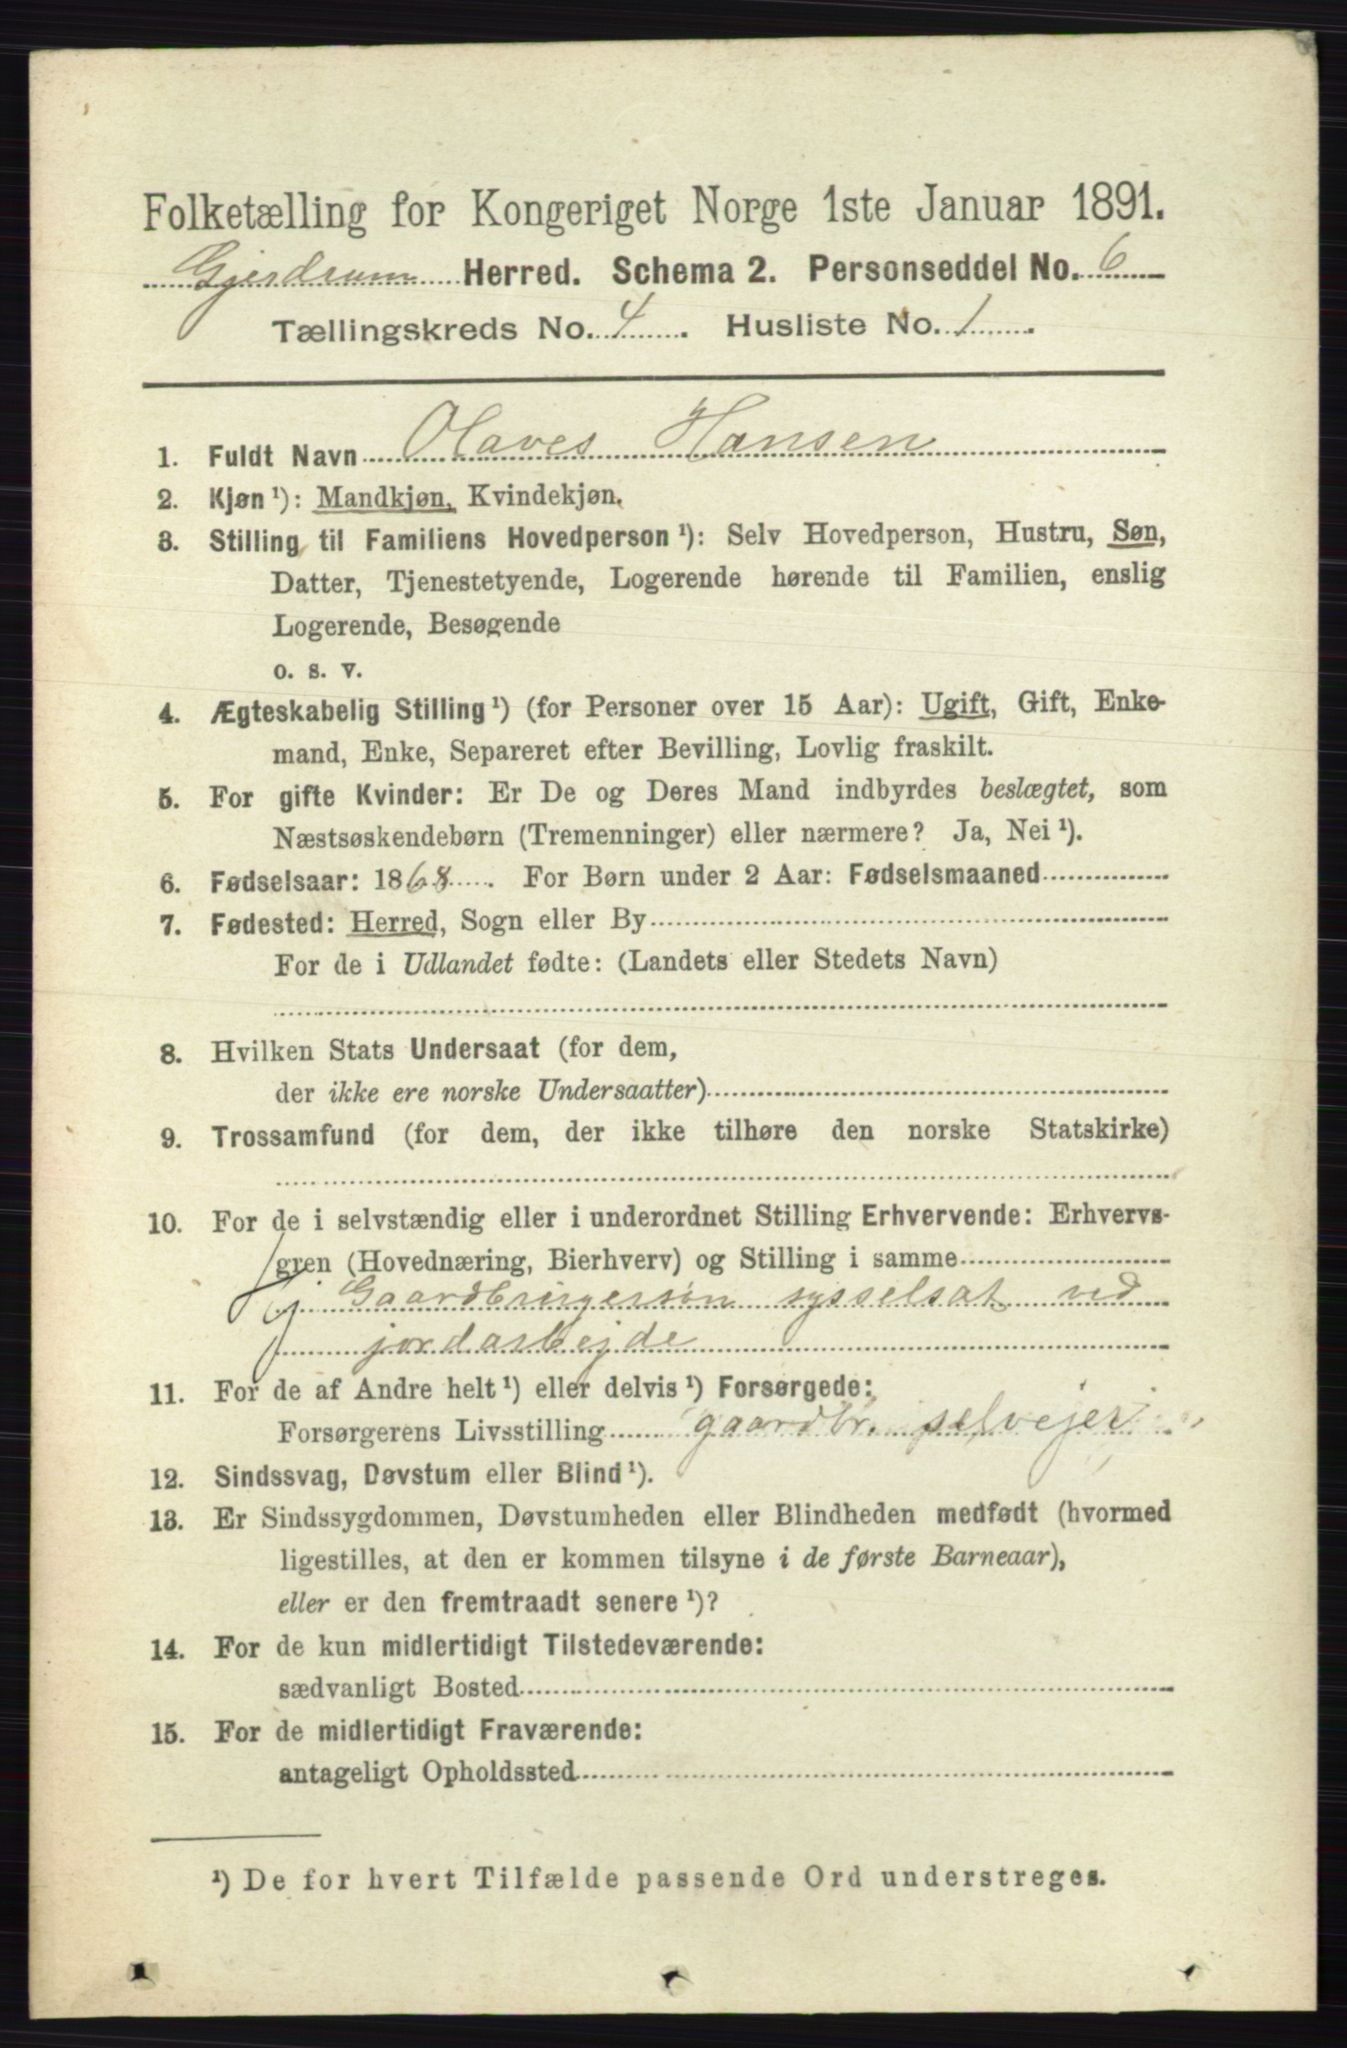 Folketælling for Kongeriget Norge 1ste Januar 1891.
Gjerdrum Herred. Schema 2. Personseddel No. 6
Tællingskreds No. 4. Husliste No. 1.
1. Fuldt Navn Olaves Hansen
2. Kjøn ¹): Mandkjøn, Kvindekjøn.
3. Stilling til Familiens Hovedperson ¹): Selv Hovedperson, Hustru, Søn,
Datter, Tjenestetyende, Logerende hørende til Familien, enslig
Logerende, Besøgende
o. s. v.
4. Ægteskabelig Stilling ¹) (for Personer over 15 Aar): Ugift, Gift, Enke-
mand, Enke, Separeret efter Bevilling, Lovlig fraskilt.
5. For gifte Kvinder: Er De og Deres Mand indbyrdes beslægtet, som
Næstsøskendebørn (Tremenninger) eller nærmere? Ja, Nei ¹).
6. Fødselsaar: 1868. For Børn under 2 Aar: Fødselsmaaned
7. Fødested: Herred, Sogn eller By
For de i Udlandet fødte: (Landets eller Stedets Navn)
8. Hvilken Stats Undersaat (for dem,
der ikke ere norske Undersaatter)
9. Trossamfund (for dem, der ikke tilhøre den norske Statskirke)
10. For de i selvstændig eller i underordnet Stilling Erhvervende: Erhvervs-
gren (Hovednæring, Bierhverv) og Stilling i samme
Gaardbrugersøn sysselsat ved
jordarbejde
11. For de af Andre helt ¹) eller delvis ¹) Forsørgede:
Forsørgerens Livsstilling gaardbr. selvejer
12. Sindssvag, Døvstum eller Blind ¹).
13. Er Sindssygdommen, Døvstumheden eller Blindheden medfødt (hvormed
ligestilles, at den er kommen tilsyne i de første Barneaar),
eller er den fremtraadt senere ¹)?
14. For de kun midlertidigt Tilstedeværende:
sædvanligt Bosted
15. For de midlertidigt Fraværende:
antageligt Opholdssted
¹) De for hvert Tilfælde passende Ord understreges.